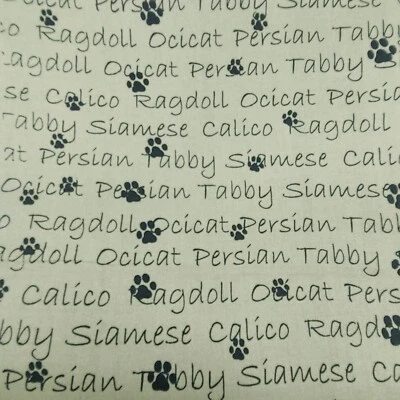 Ocicat Persian Tabby Siamese
co Ragdoll Ocicat Persian
Ragdoll Ocicat Persian Tabby S
se Calico Ragdoll Ocicat Persia
Tabby Siamese Calico Ragdoll
at Persian Tabby Siamese Cali
Ocicat Persian Tabby Siamese
o Ragdoll Ocicat Persian Tabby
agdoll Ocicat Persian Tabby
Calico Ragdoll Ocicat Pers
bby Siamese Calico Ragd
Persian Tabby Siamese Ca